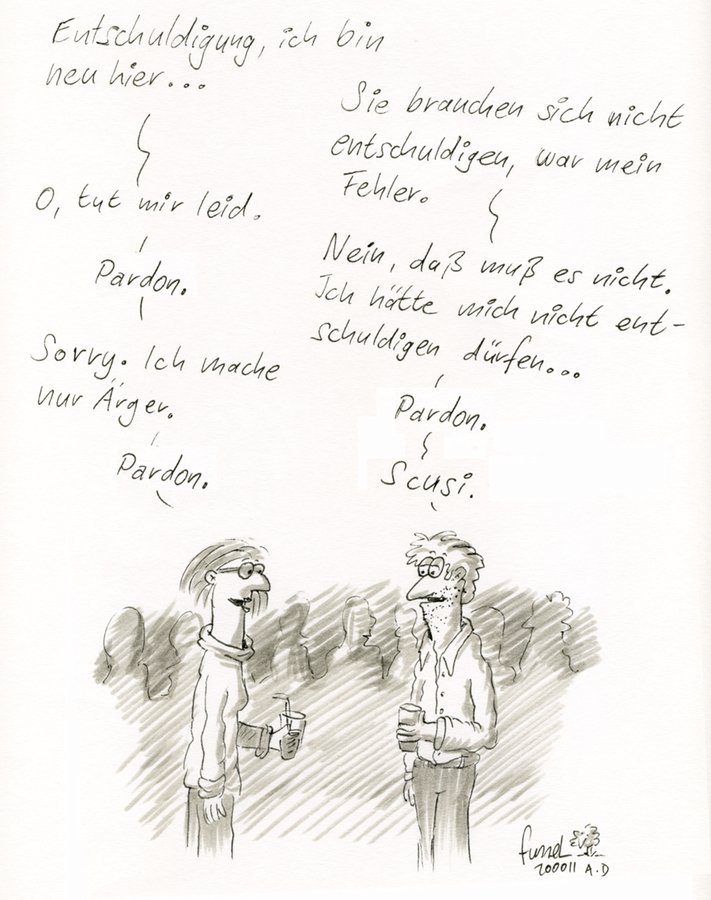 Entschuldigung, ich bin
neu hier...
Sie brauchen sich nicht
entschuldigen, war mein
Fehler.
O, tut mir leid.
Nein, daß muß es nicht.
Ich hätte mich nicht ent-
schuldigen dürfen...
Pardon.
Sorry. Ich mache
nur Ärger.
Pardon.
Pardon.
Scusi.
200011 A.D